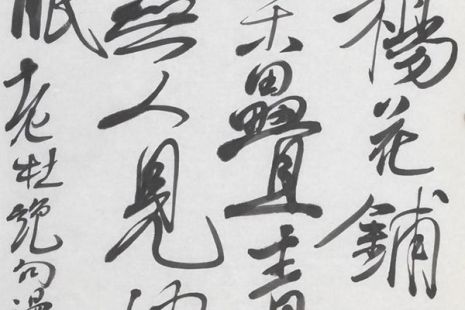 楊花鋪
葉疊青
無人見
眠 老杜絕句漫